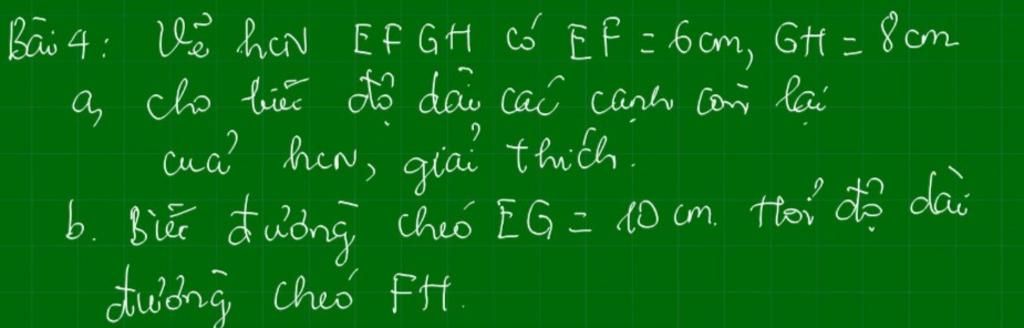 Bài 4: Vẽ hcN EFGH có EF = 6 cm, GH = 8 cm
a, cho biết độ dài các cạnh còn lại
của hcN, giải thích.
b. Biết đường chéo EG = 10 cm. Hỏi độ dài
đường chéo FH.